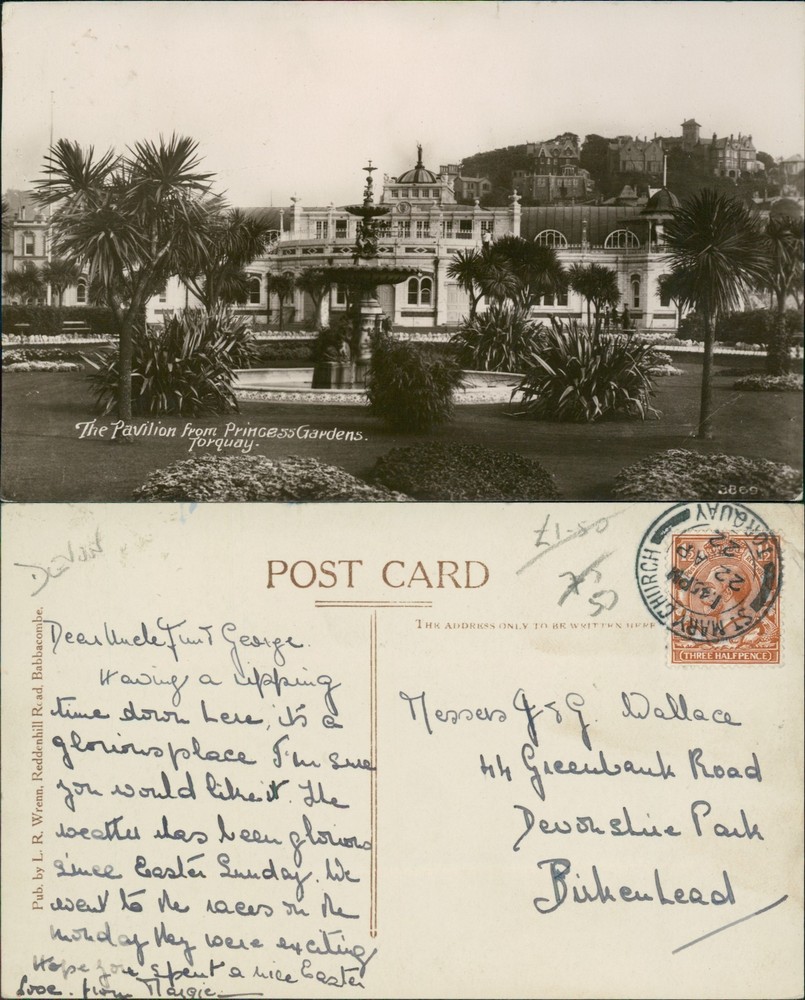 The Pavilion from Princess Gardens.
Torquay.
3869
Devon
08-17
POST CARD
THE ADDRESS ONLY TO BE WRITTEN HERE
ST MARY CHURCH
TORQUAY
22 AP
22
(THREE HALFPENCE)
Pub. by L. R. Wrenn, Reddenhill Road, Babbacombe.
Dear Uncle Jim & George.
Having a ripping
time down here, it's a
glorious place I'm sure
you would like it. The
weather has been glorious
since Easter Sunday. We
went to the races on the
Monday they were exciting
Hope you spent a nice Easter
Love. from Margie
Messers J & G. Wallace
44 Greenbank Road
Devonshire Park
Birkenhead